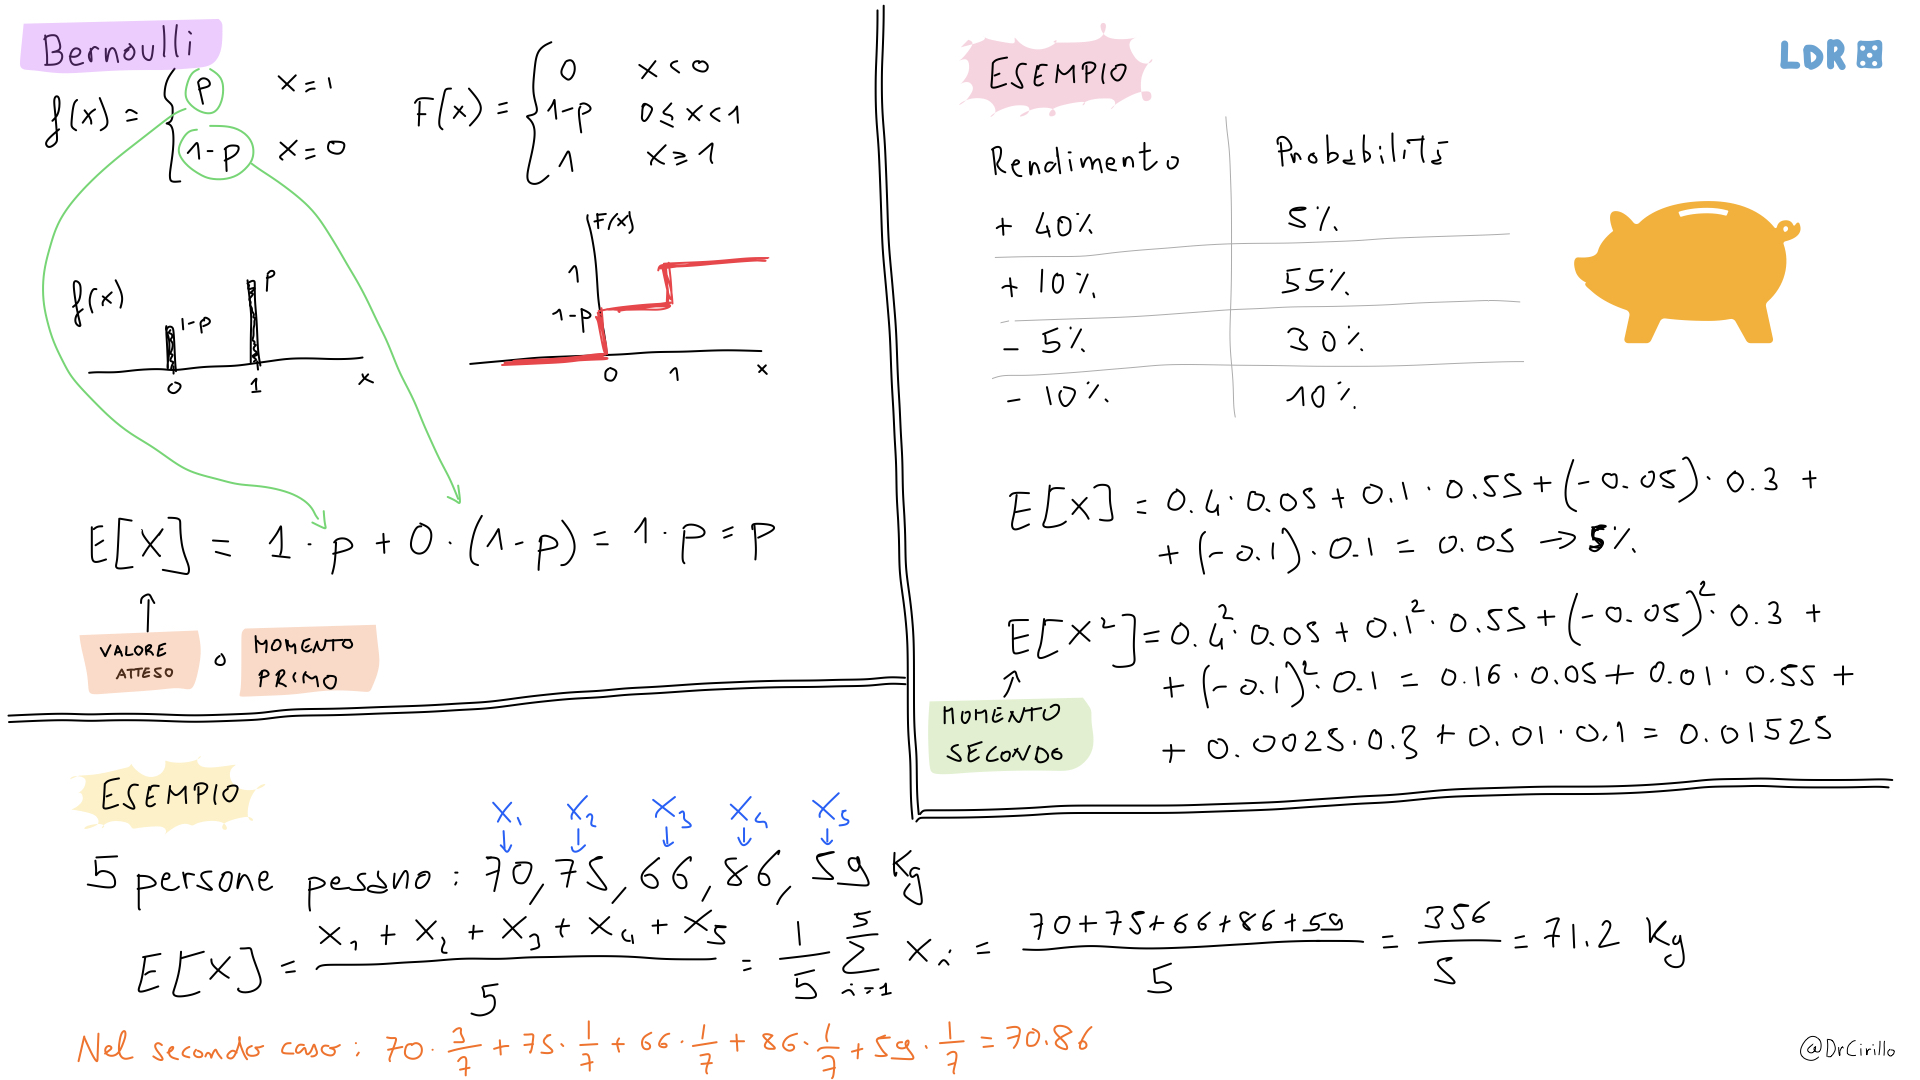 Bernoulli
f(x) = { p x=1
1-p x=0
F(x) = { 0 x<0
1-p 0≤x<1
1 x≥1
f(x)
1-p
p
0 1 x
F(x)
1
1-p
0 1 x
E[X] = 1·p + 0·(1-p) = 1·p = p
VALORE ATTESO o MOMENTO PRIMO
ESEMPIO
LDR
Rendimento Probabilità
+ 40% 5%
+ 10% 55%
- 5% 30%
- 10% 10%
E[X] = 0.4·0.05 + 0.1·0.55 + (-0.05)·0.3 +
+ (-0.1)·0.1 = 0.05 → 5%
E[X²] = 0.4²·0.05 + 0.1²·0.55 + (-0.05)²·0.3 +
+ (-0.1)²·0.1 = 0.16·0.05 + 0.01·0.55 +
+ 0.0025·0.3 + 0.01·0.1 = 0.01525
MOMENTO
SECONDO
ESEMPIO
x₁ x₂ x₃ x₄ x₅
5 persone pesano : 70, 75, 66, 86, 59 Kg
E[X] = (x₁ + x₂ + x₃ + x₄ + x₅)/5 = 1/5 ∑_{i=1}^{5} x_i = (70+75+66+86+59)/5 = 356/5 = 71.2 Kg
Nel secondo caso : 70·3/7 + 75·1/7 + 66·1/7 + 86·1/7 + 59·1/7 = 70.86
@DrCirillo